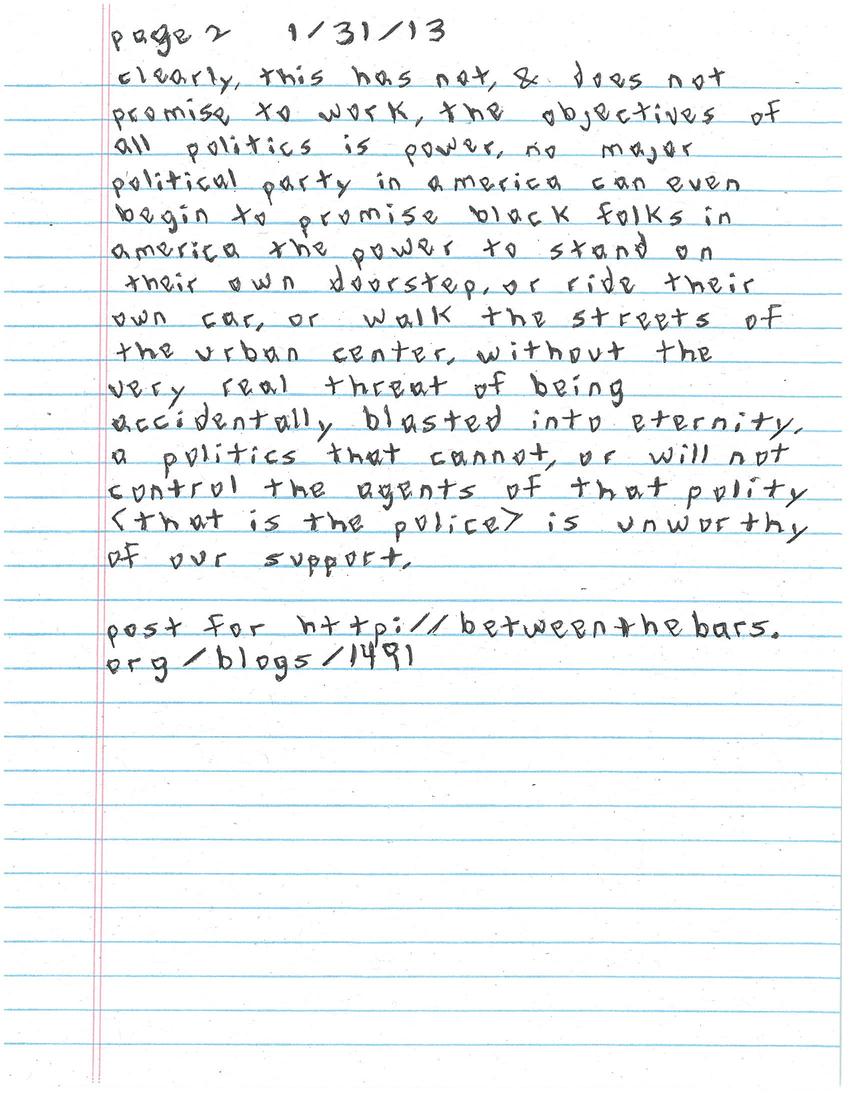 page 2 1/31/13
clearly, this has not, & does not
promise to work, the objectives of
all politics is power, no major
political party in america can even
begin to promise black folks in
america the power to stand on
their own doorstep, or ride their
own car, or walk the streets of
the urban center, without the
very real threat of being
accidentally blasted into eternity.
a politics that cannot, or will not
control the agents of that polity
<that is the police> is unworthy
of our support.
post for http://betweenthebars.
org/blogs/1491